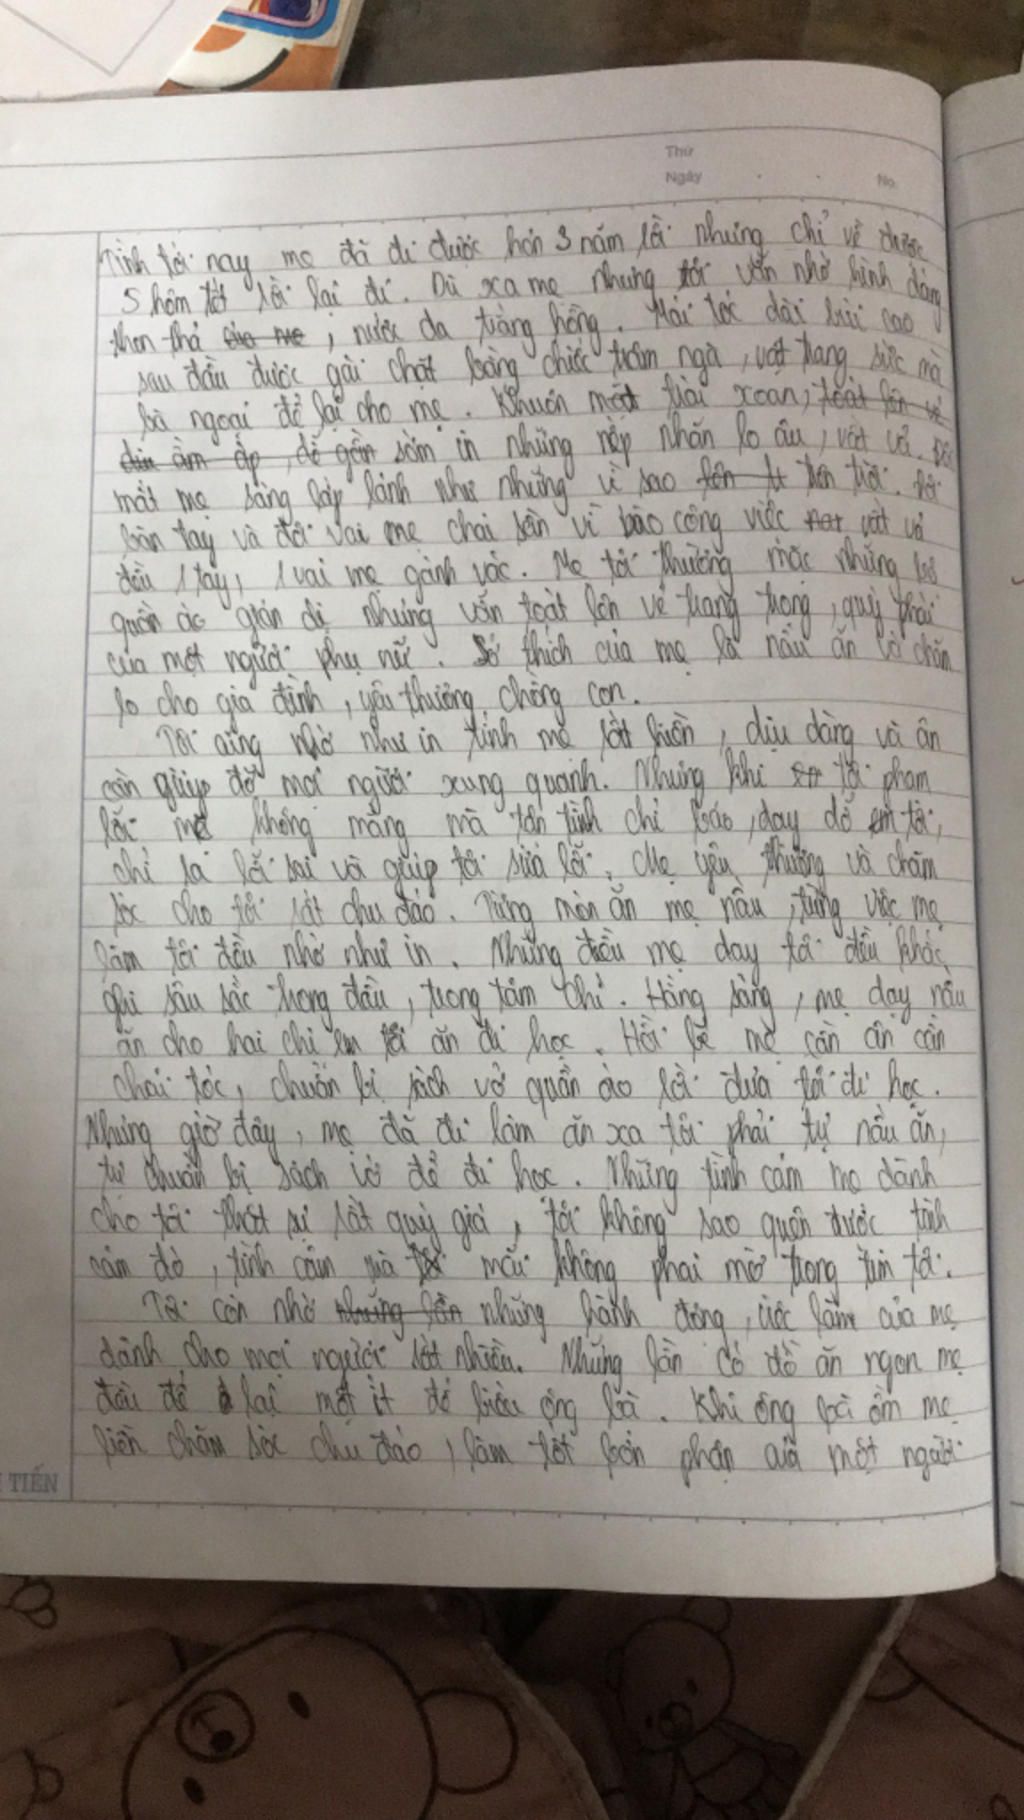 Thứ
Ngày
No.
Tính tới nay mẹ đã đi được hơn 3 năm rồi nhưng chỉ về được
5 hôm tết rồi lại đi. Dù xa mẹ nhưng tôi vẫn nhớ hình dáng
thon thả của mẹ, nước da trắng hồng. Mái tóc dài búi cao
sau đầu được gài chặt bằng chiếc trâm ngà, vật trang sức mà
bà ngoại để lại cho mẹ. Khuôn mặt trái xoan, toát lên vẻ
dịu ấm áp, để gần sớm in những nếp nhăn lo âu, vất vả. Đôi
mắt mẹ sáng lấp lánh như những vì sao trên trời. Đôi
bàn tay và đôi vai mẹ chai sần vì bao công việc vất vả
đều 1 tay, 1 vai mẹ gánh vác. Mẹ tôi thường mặc những bộ
quần áo giản dị nhưng vẫn toát lên vẻ trang trọng, quý phái
của một người phụ nữ. Sở thích của mẹ là nấu ăn và chăm
lo cho gia đình, yêu thương chồng con.
Tôi cũng nhớ như in tính mẹ rất hiền, dịu dàng và ân
cần giúp đỡ mọi người xung quanh. Nhưng khi tôi phạm
lỗi mẹ không mắng mà tận tình chỉ bảo, dạy dỗ em tôi,
chỉ ra lỗi sai và giúp tôi sửa lỗi. Mẹ yêu thương và chăm
sóc cho tôi rất chu đáo. Từng món ăn mẹ nấu, từng việc mẹ
làm tôi đều nhớ như in. Những điều mẹ dạy tôi đều khắc
ghi sâu sắc trong đầu, trong tâm chí. Hằng sáng, mẹ dạy nấu
ăn cho hai chị em tôi ăn đi học. Hồi bé mẹ còn ân cần
chải tóc, chuẩn bị sách vở quần áo rồi đưa tôi đi học.
Nhưng giờ đây, mẹ đã đi làm ăn xa tôi phải tự nấu ăn,
tự chuẩn bị sách vở để đi học. Những tình cảm mẹ dành
cho tôi thật sự rất quý giá, tôi không sao quên được tình
cảm đó, tình cảm mà mãi không phai mờ trong tim tôi.
Tôi còn nhớ những lần những hành động, việc làm của mẹ
dành cho mọi người rất nhiều. Những lần có đồ ăn ngon mẹ
đều để lại một ít để biếu ông bà. Khi ông bà ốm mẹ
liền chăm sóc chu đáo, làm tốt bổn phận của một người
TIẾN